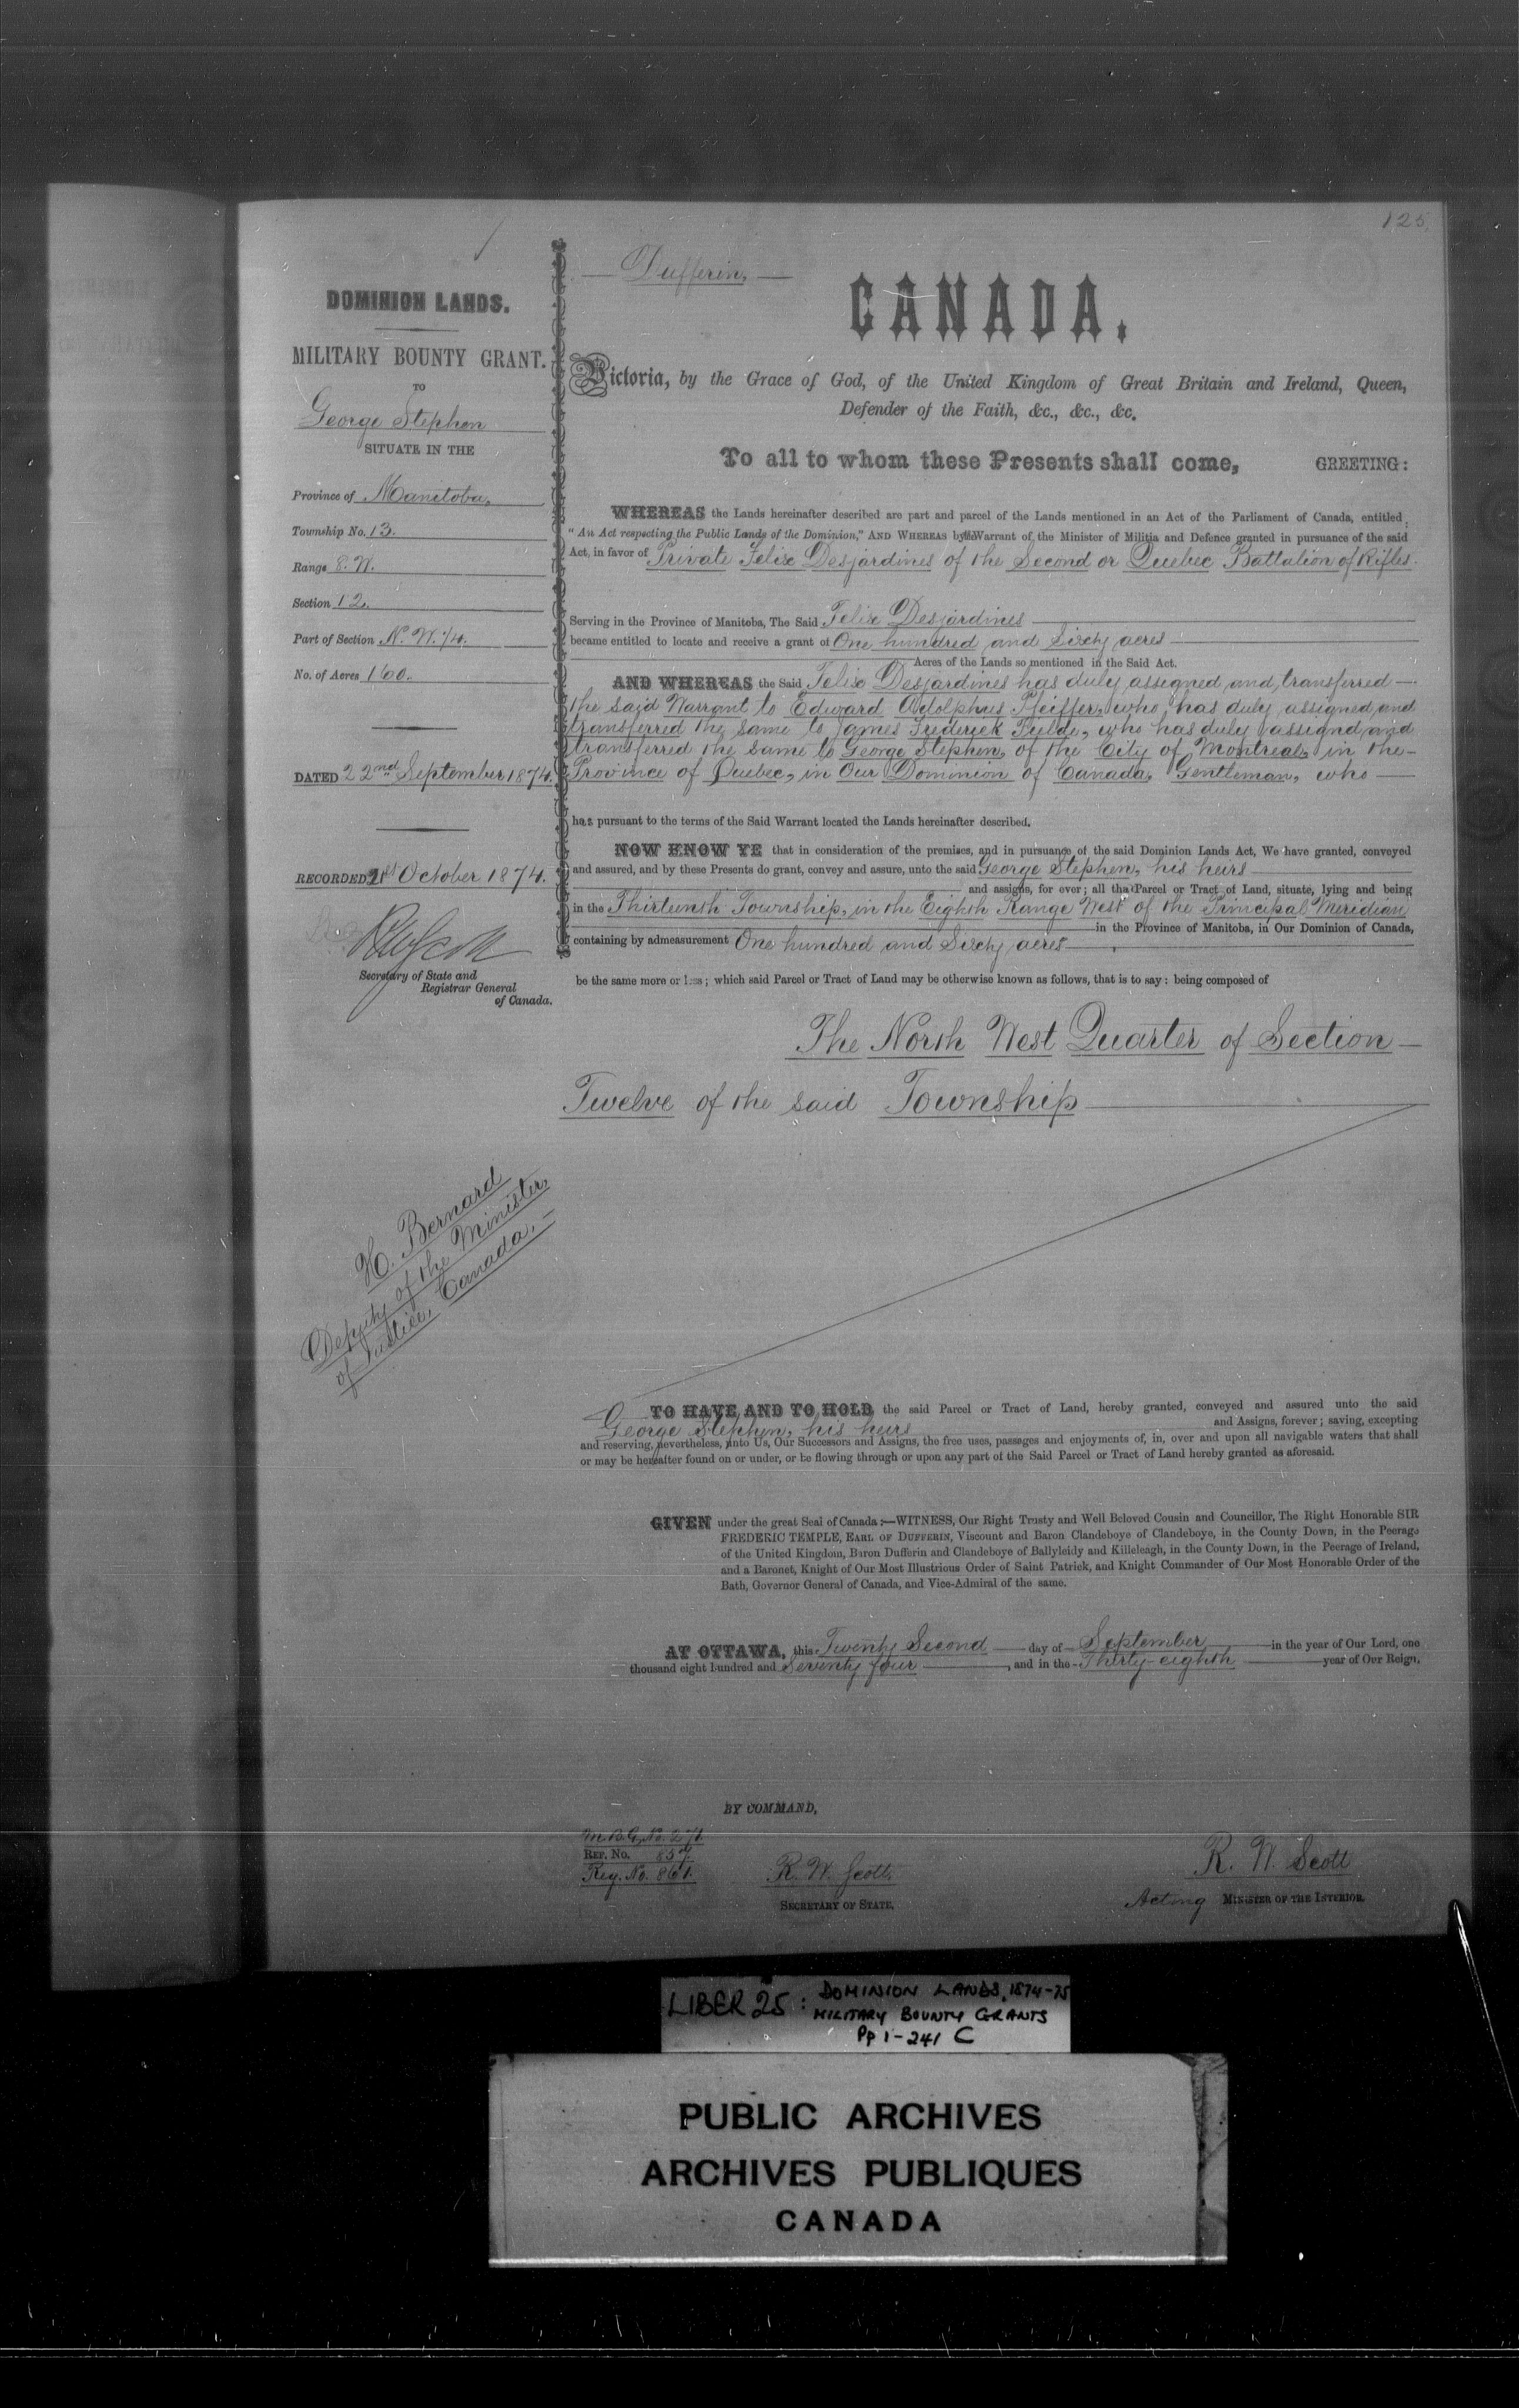 125.
DOMINION LANDS.
MILITARY BOUNTY GRANT.
TO
George Stephen
SITUATE IN THE
Province of Manitoba,
Township No. 13.
Range 8. W.
Section 12.
Part of Section N. W. 1/4.
No. of Acres 160.
DATED 22nd September 1874.
RECORDED 21st October 1874.
Secretary of State and
Registrar General
of Canada.
H. Bernard
Deputy of the Minister
of Justice, Canada.
Dufferin,
CANADA.
Victoria, by the Grace of God, of the United Kingdom of Great Britain and Ireland, Queen,
Defender of the Faith, &c., &c., &c.
To all to whom these Presents shall come, GREETING:
WHEREAS the Lands hereinafter described are part and parcel of the Lands mentioned in an Act of the Parliament of Canada, entitled
"An Act respecting the Public Lands of the Dominion," AND WHEREAS by the Warrant of the Minister of Militia and Defence granted in pursuance of the said
Act, in favor of Private Felix Desjardines of the Second or Quebec Battalion of Rifles.
Serving in the Province of Manitoba, The Said Felix Desjardines
became entitled to locate and receive a grant of One hundred and Sixty acres
Acres of the Lands so mentioned in the Said Act.
AND WHEREAS the Said Felix Desjardines has duly assigned and transferred
the said Warrant to Edward Adolphus Pfeiffer, who has duly assigned and
transferred the same to James Frederick Fylde, who has duly assigned and
transferred the same to George Stephen, of the City of Montreal, in the
Province of Quebec, in Our Dominion of Canada, Gentleman, who
has pursuant to the terms of the Said Warrant located the Lands hereinafter described.
NOW KNOW YE that in consideration of the premises, and in pursuance of the said Dominion Lands Act, We have granted, conveyed
and assured, and by these Presents do grant, convey and assure, unto the said George Stephen, his heirs
and assigns, for ever; all that Parcel or Tract of Land, situate, lying and being
in the Thirteenth Township, in the Eighth Range West of the Principal Meridian
in the Province of Manitoba, in Our Dominion of Canada,
containing by admeasurement One hundred and Sixty acres
be the same more or less; which said Parcel or Tract of Land may be otherwise known as follows, that is to say: being composed of
The North West Quarter of Section
Twelve of the said Township
TO HAVE AND TO HOLD the said Parcel or Tract of Land, hereby granted, conveyed and assured unto the said
George Stephen, his heirs and Assigns, forever; saving, excepting
and reserving, nevertheless, unto Us, Our Successors and Assigns, the free uses, passages and enjoyments of, in, over and upon all navigable waters that shall
or may be hereafter found on or under, or be flowing through or upon any part of the Said Parcel or Tract of Land hereby granted as aforesaid.
GIVEN under the great Seal of Canada:—WITNESS, Our Right Trusty and Well Beloved Cousin and Councillor, The Right Honorable SIR
FREDERIC TEMPLE, EARL OF DUFFERIN, Viscount and Baron Clandeboye of Clandeboye, in the County Down, in the Peerage
of the United Kingdom, Baron Dufferin and Clandeboye of Ballyleidy and Killeleagh, in the County Down, in the Peerage of Ireland,
and a Baronet, Knight of Our Most Illustrious Order of Saint Patrick, and Knight Commander of Our Most Honorable Order of the
Bath, Governor General of Canada, and Vice-Admiral of the same.
AT OTTAWA, this Twenty Second day of September in the year of Our Lord, one
thousand eight hundred and Seventy four, and in the Thirty-eighth year of Our Reign.
BY COMMAND,
M.B.G. No. 271.
REF. No. 857.
Reg. No. 861.
R. W. Scott,
SECRETARY OF STATE.
R. W. Scott
Acting MINISTER OF THE INTERIOR.
LIBER 25: DOMINION LANDS, 1874-75
MILITARY BOUNTY GRANTS
Pp 1-241 C
PUBLIC ARCHIVES
ARCHIVES PUBLIQUES
CANADA